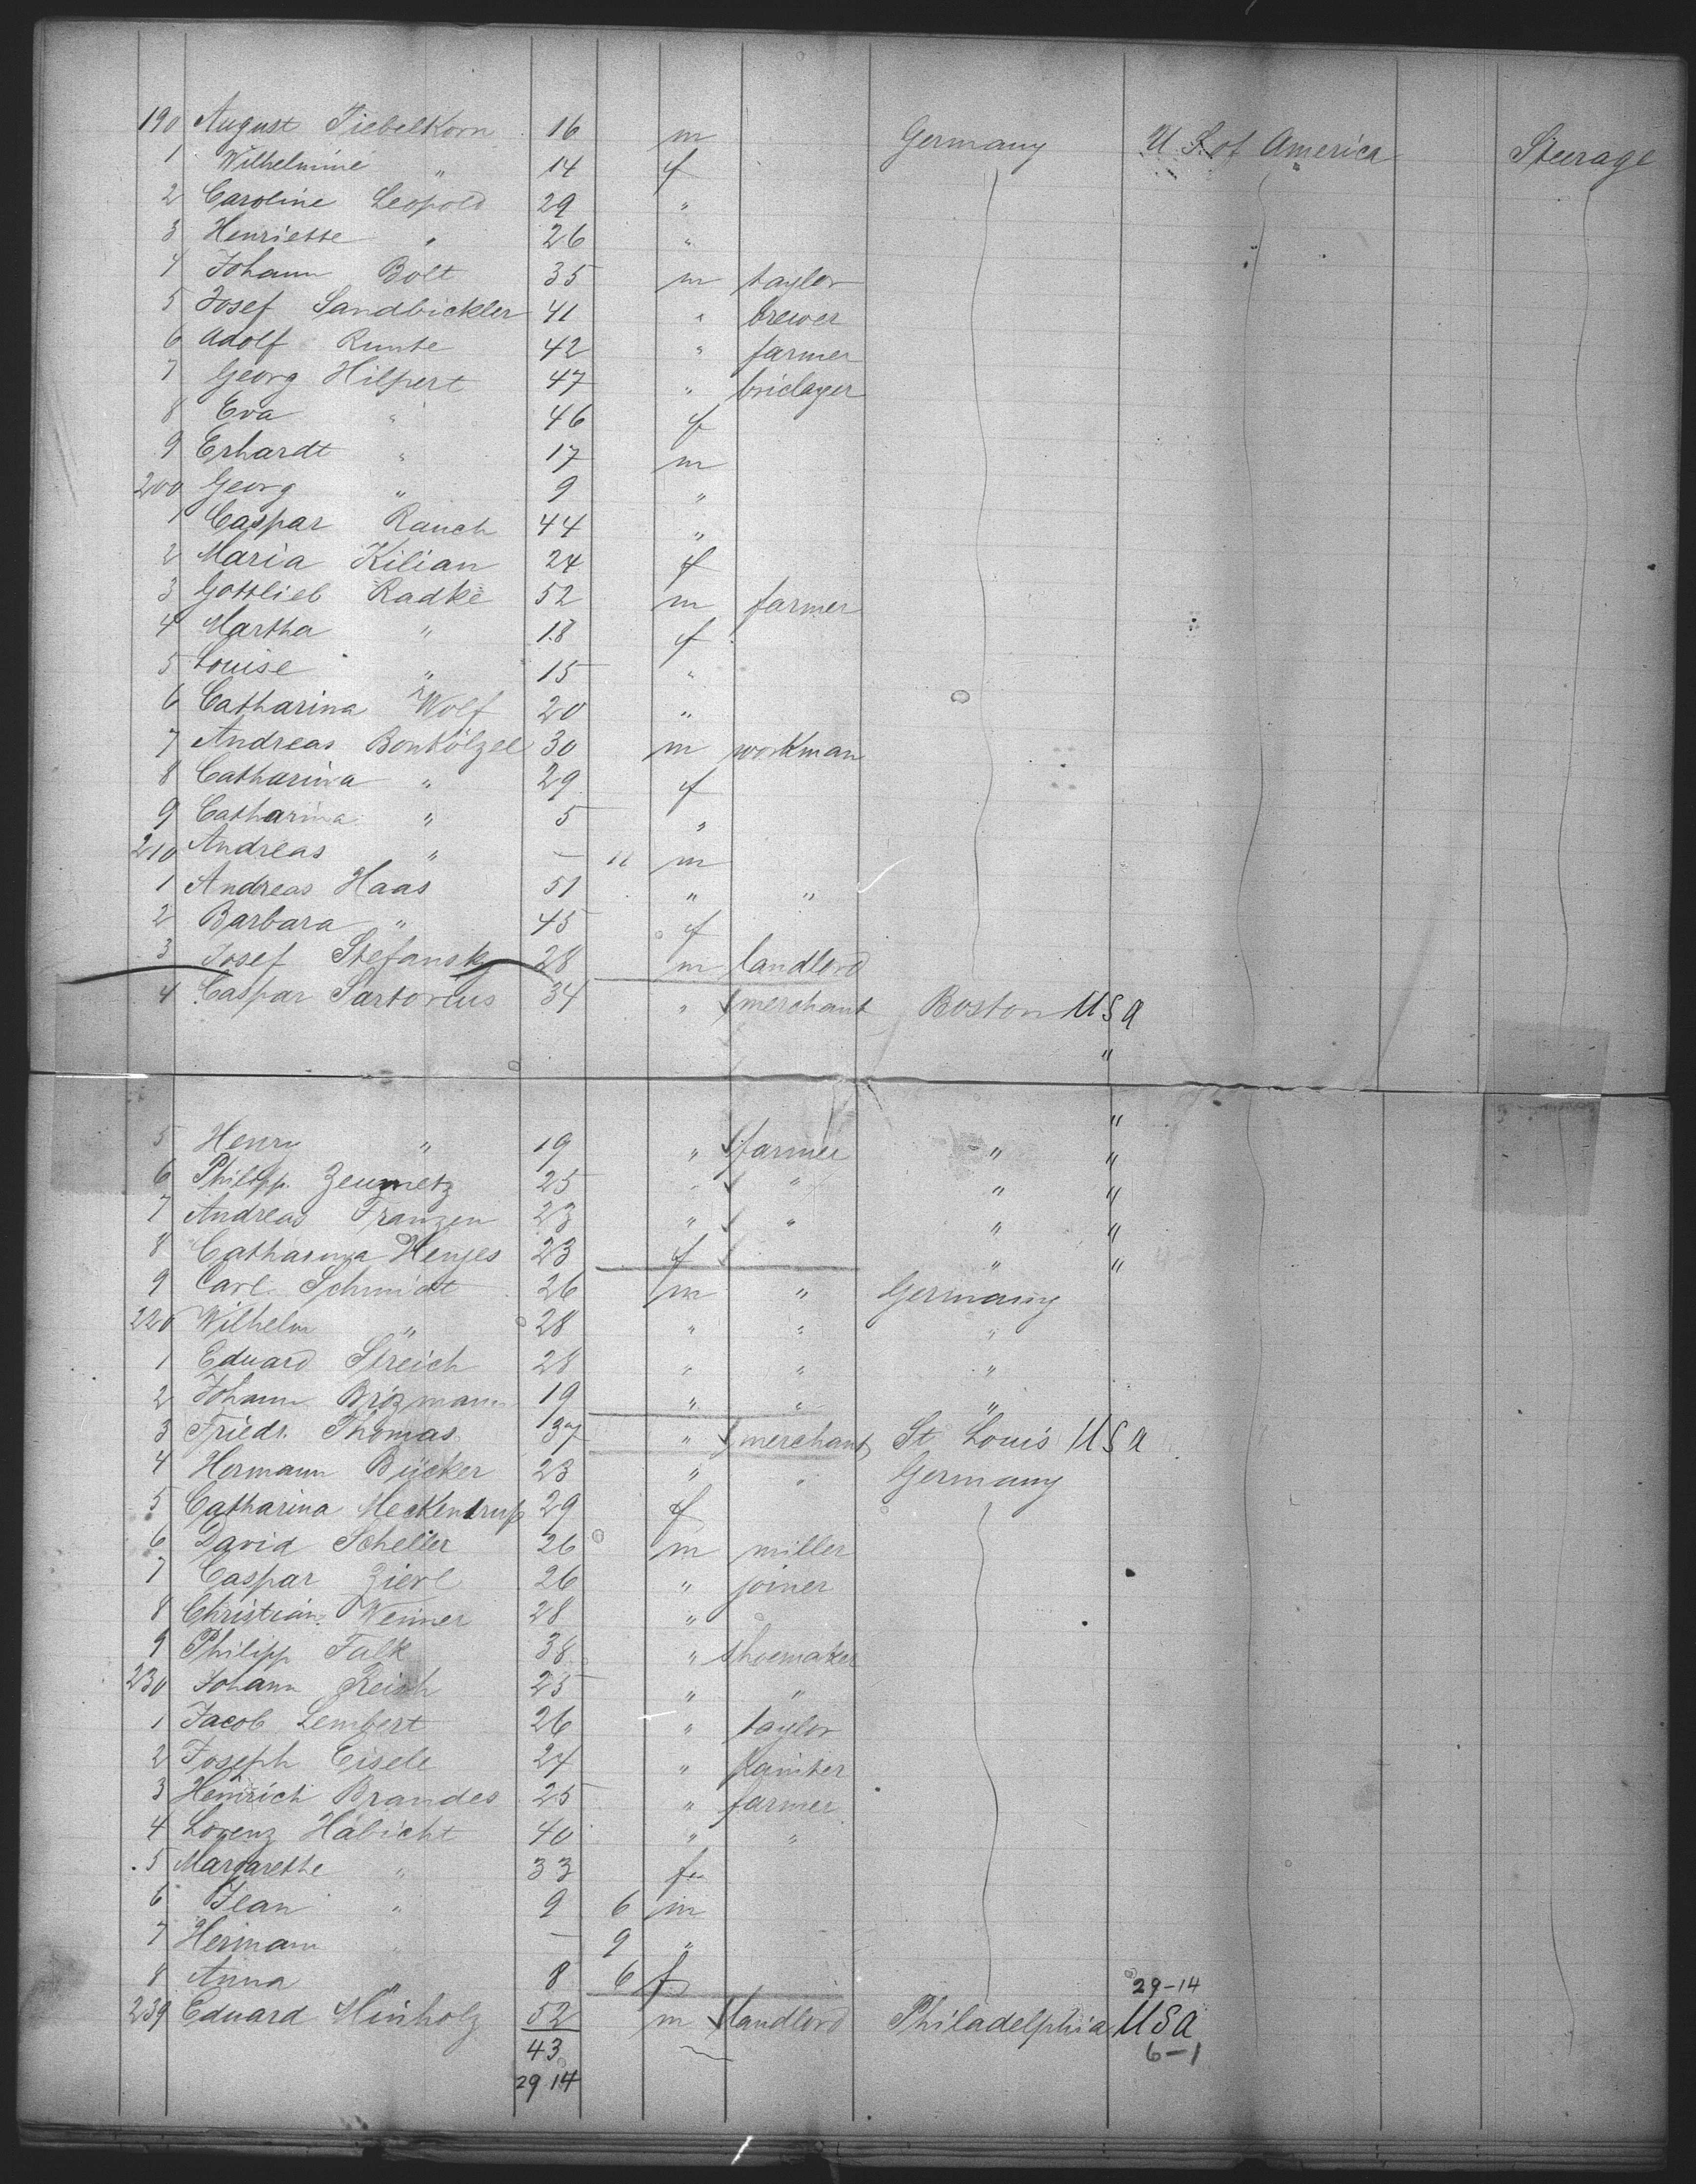 190 August Tiebelkorn 16 m Germany U S. of America Steerage
1 Wilhelmine " 14 f
2 Caroline Leopold 29 "
3 Henriette " 26 "
4 Johann Bolt 35 m taylor
5 Josef Sandbickler 41 " brewer
6 Adolf Runte 42 " farmer
7 Georg Hilpert 47 " briclayer
8 Eva " 46 f
9 Erhardt " 17 m
200 Georg " 9 "
1 Caspar Rauch 44 "
2 Maria Kilian 24 f
3 Gottlieb Radke 52 m farmer
4 Martha " 18 f
5 Louise " 15 "
6 Catharina Wolf 20 "
7 Andreas 30 m workman
8 Catharina " 29 f
9 Catharina " 5 "
210 Andreas " — 11 m
1 Andreas Haas 51 " "
2 Barbara " 45 f
3 Josef Stefansky 28 m landlord
4 Caspar Sartorius 34 " merchant Boston USA
"
"
5 Henry " 19 " farmer " "
6 Philipp Zeuzmetz 25 " " " "
7 Andreas Franzen 23 " " " "
8 Catharina Henjes 23 f " "
9 Carl Schmidt 26 m " Germany
220 Wilhelm " 28 " " "
1 Eduard Streich 28 " " "
2 Johann 19 " " "
3 Friedr. Thomas 37 " merchant St Louis USA
4 Hermann Bücker 23 " " Germany
5 Catharina Meckentrup 29 f
6 David Scheller 26 m miller
7 Caspar Zierl 26 " joiner
8 Christian Weiner 28 "
9 Philipp Falk 38 " shoemaker
230 Johann Reisch 25 " "
1 Jacob Lembert 26 " taylor
2 Joseph Eisele 24 " painter
3 Heinrich Brandes 25 " farmer
4 Lorenz Habicht 40 " "
5 Margarethe " 33 f
6 Jean " 9 6 m
7 Hermann " — 9 "
8 Anna 8 6 f
29-14
239 Eduard Minholz 52 m landlord Philadelphia USA
43 6-1
29 14